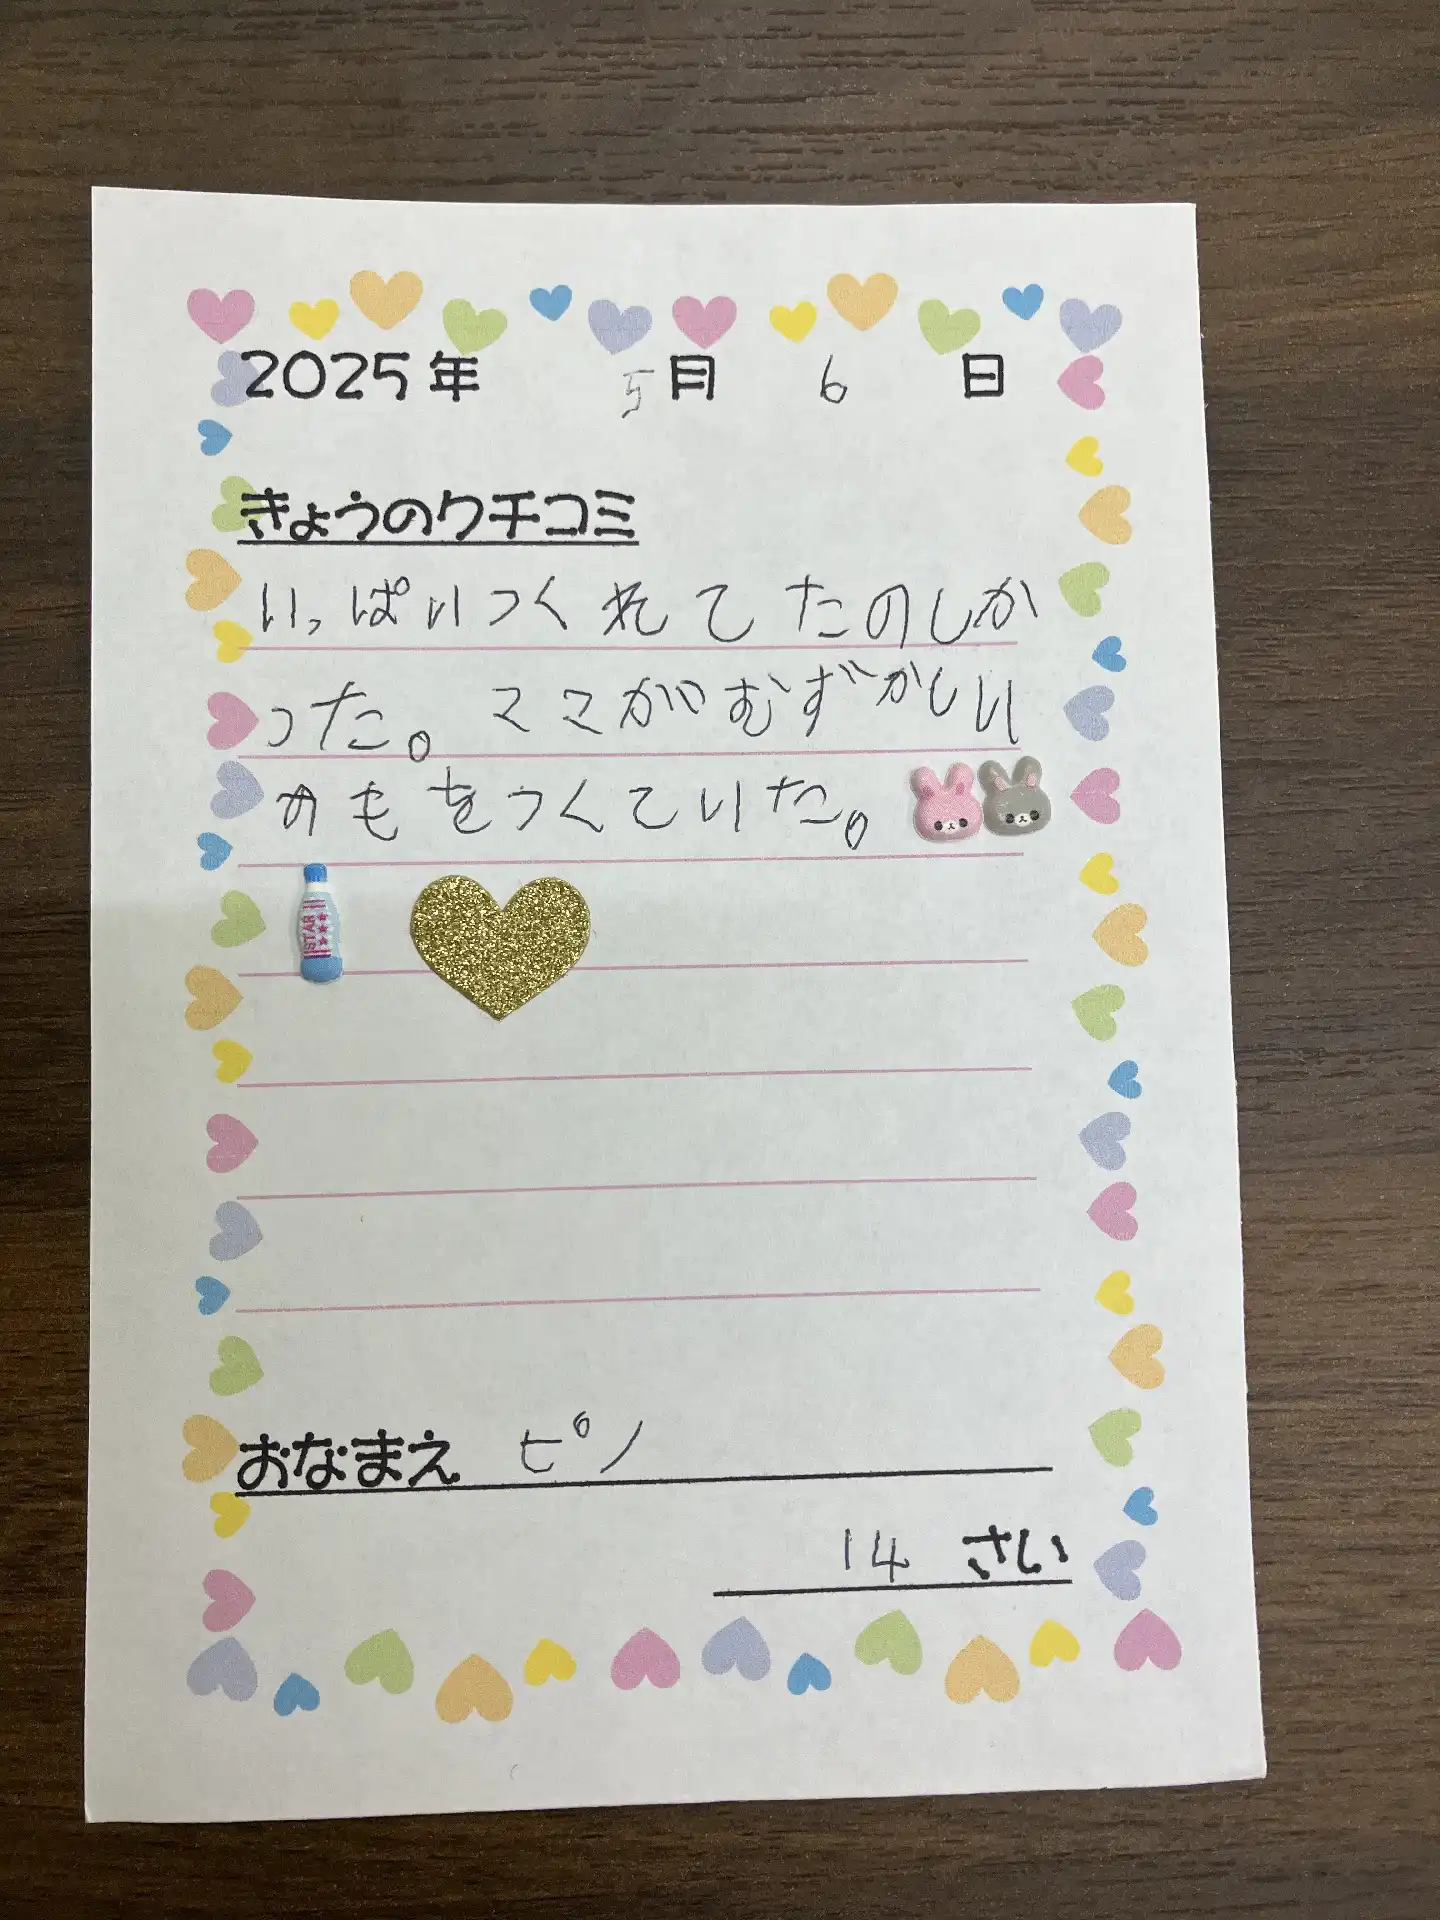 2025年 5月 6日
きょうのクチコミ
いっぱいつくれてたのしか
った。ママがむずかしい
のもをつくていた。
STAR
おなまえ ピノ
14 さい